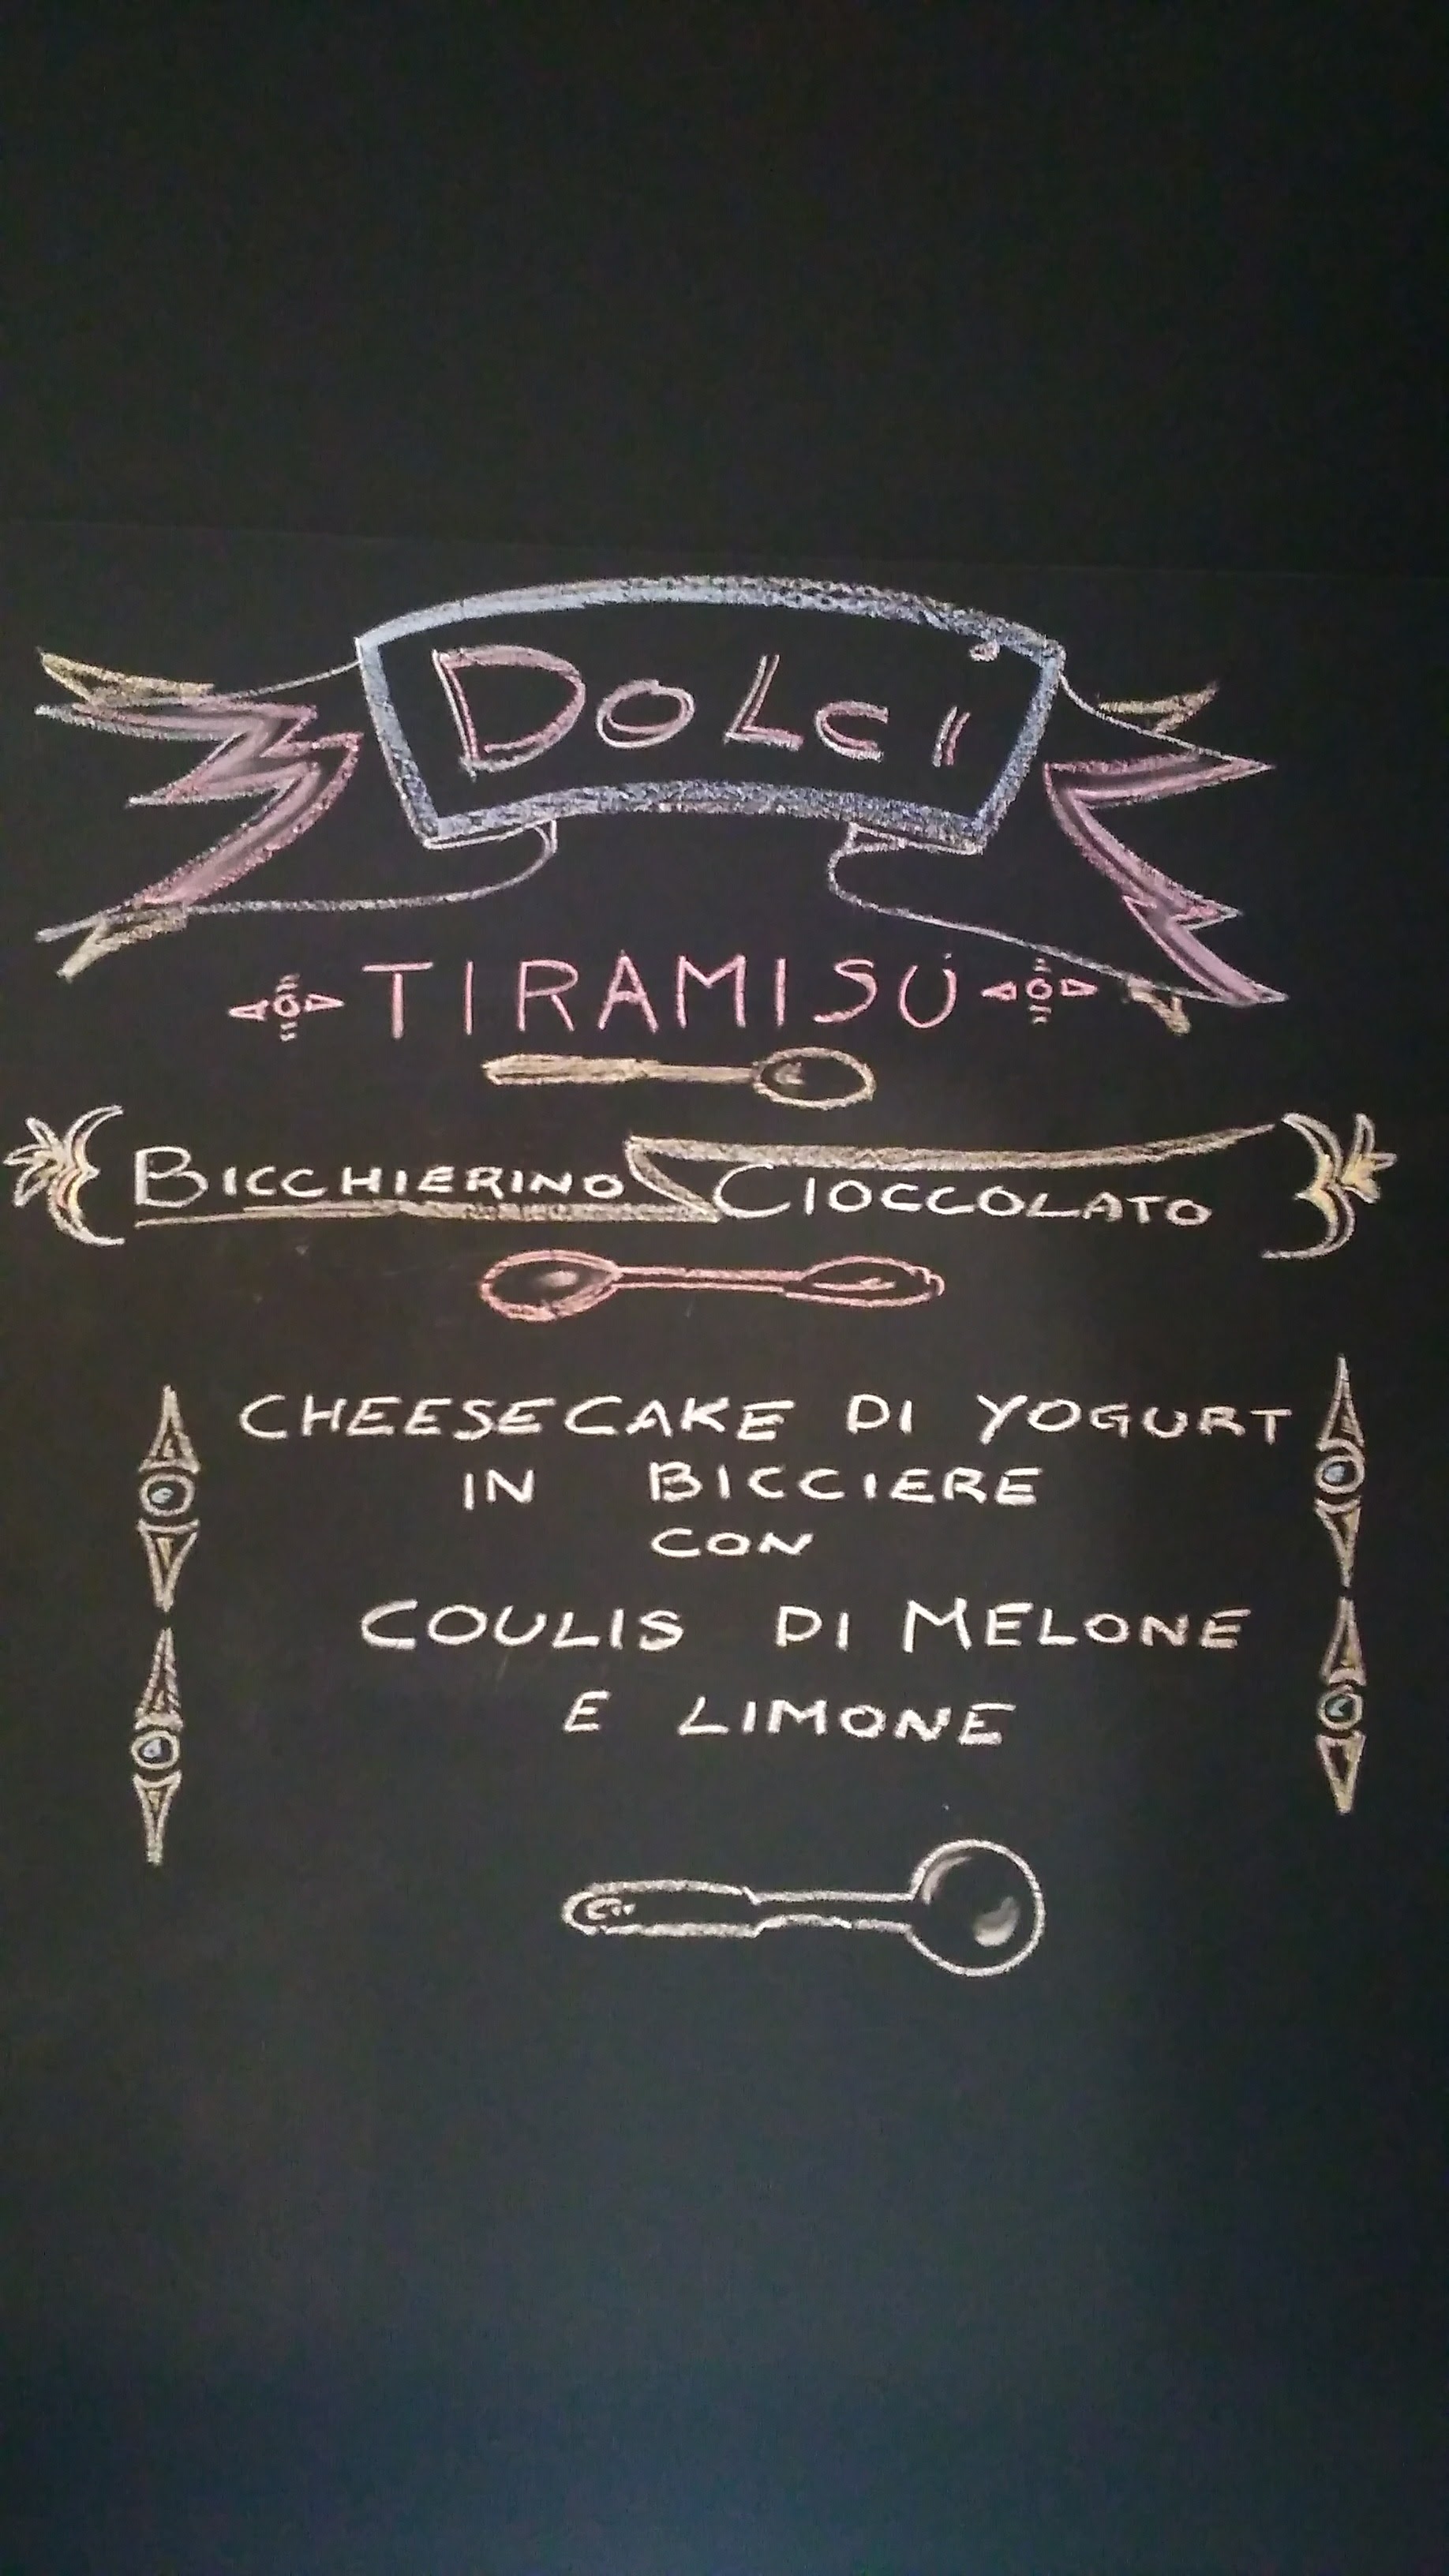 DOLCI
TIRAMISÙ
BICCHIERINO CIOCCOLATO
CHEESECAKE DI YOGURT
IN BICCIERE
CON
COULIS DI MELONE
E LIMONE